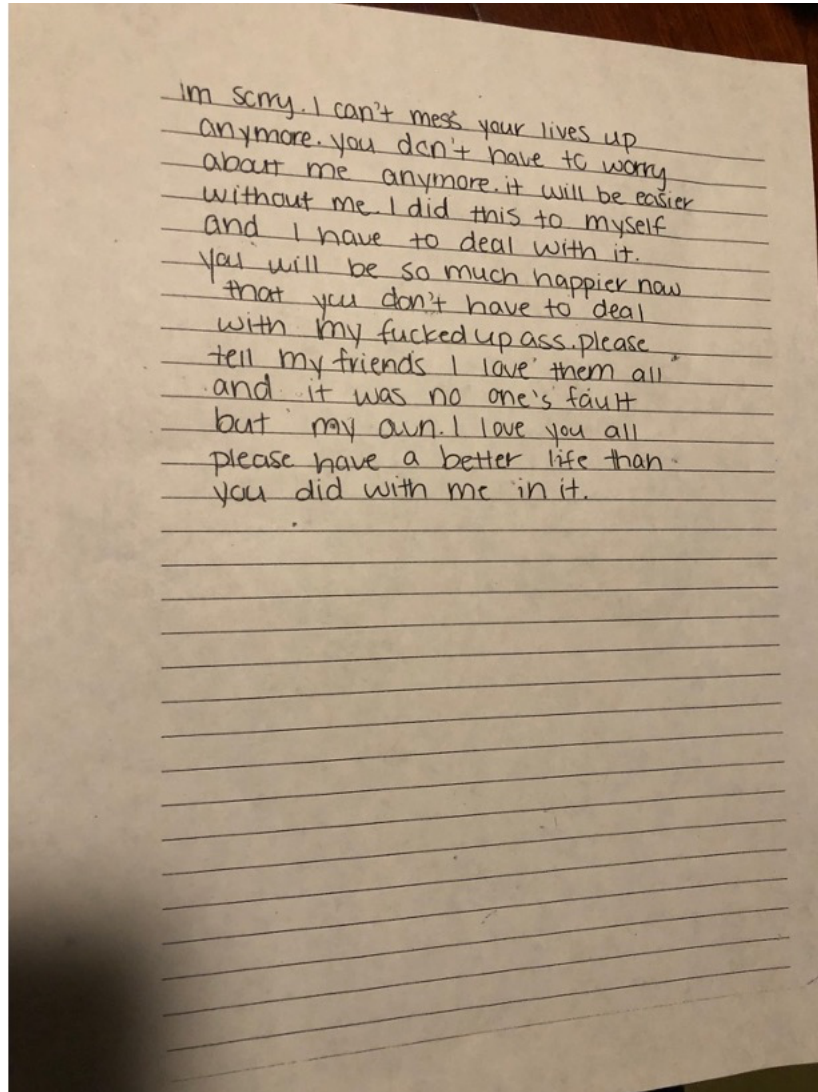 im sorry. I can't mess your lives up
anymore. you don't have to worry
about me anymore. it will be easier
without me. I did this to myself
and I have to deal with it.
you will be so much happier now
that you don't have to deal
with my fucked up ass. please
tell my friends I love them all
and it was no one's fault
but my own. I love you all
please have a better life than
you did with me in it.